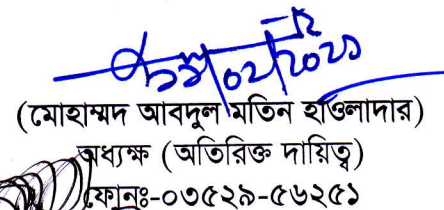 /০২/২০২১
(মোহাম্মদ আবদুল মতিন হাওলাদার)
অধ্যক্ষ (অতিরিক্ত দায়িত্ব)
ফোনঃ-০৩৫২৯-৫৬২৫১